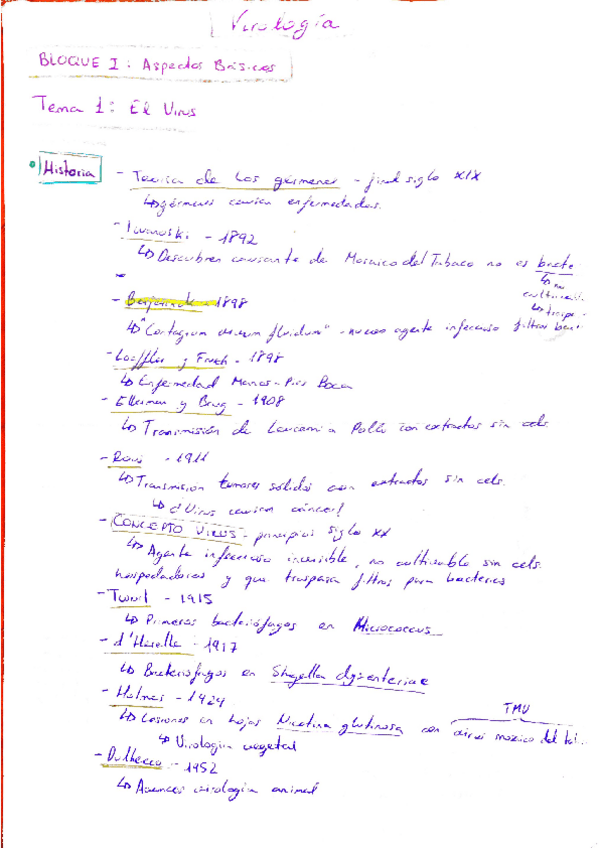 Virología
BLOQUE I: Aspectos Básicos
Tema 1: El Virus
Historia
- Teoría de los gérmenes - final siglo XIX
↳ gérmenes causan enfermedades.
- Iwanoski - 1892
↳ Descubren causante de Mosaico del Tabaco no es bacte
↳ no
↳ traspa
- Beijerinck - 1898
↳ "Contagium vivum fluidum" - nuevo agente infeccioso filtros bac
- Loeffler y Frosch - 1898
↳ Enfermedad Manos-Pies Boca
- Ellerman y Bang - 1908
↳ Transmisión de Leucemia Pollo con extractos sin cels.
- Rous - 1911
↳ Transmisión tumores sólidos con extractos sin cels.
↳ ¿Virus causan cáncer?
- CONCEPTO VIRUS - principios siglo XX
↳ Agente infeccioso invisible, no cultivable sin cels.
hospedadoras y que traspasa filtros para bacterias
- Twort - 1915
↳ Primeros bacteriófagos en Micrococcus
- d'Herelle - 1917
↳ Bacteriófagos en Shigella dysenteriae
- Holmes - 1924
TMV
↳ Lesiones en hojas Nicotina glutinosa con virus mozaico del ta
↳ Virología vegetal
- Dulbecco - 1952
↳ Avances virología animal